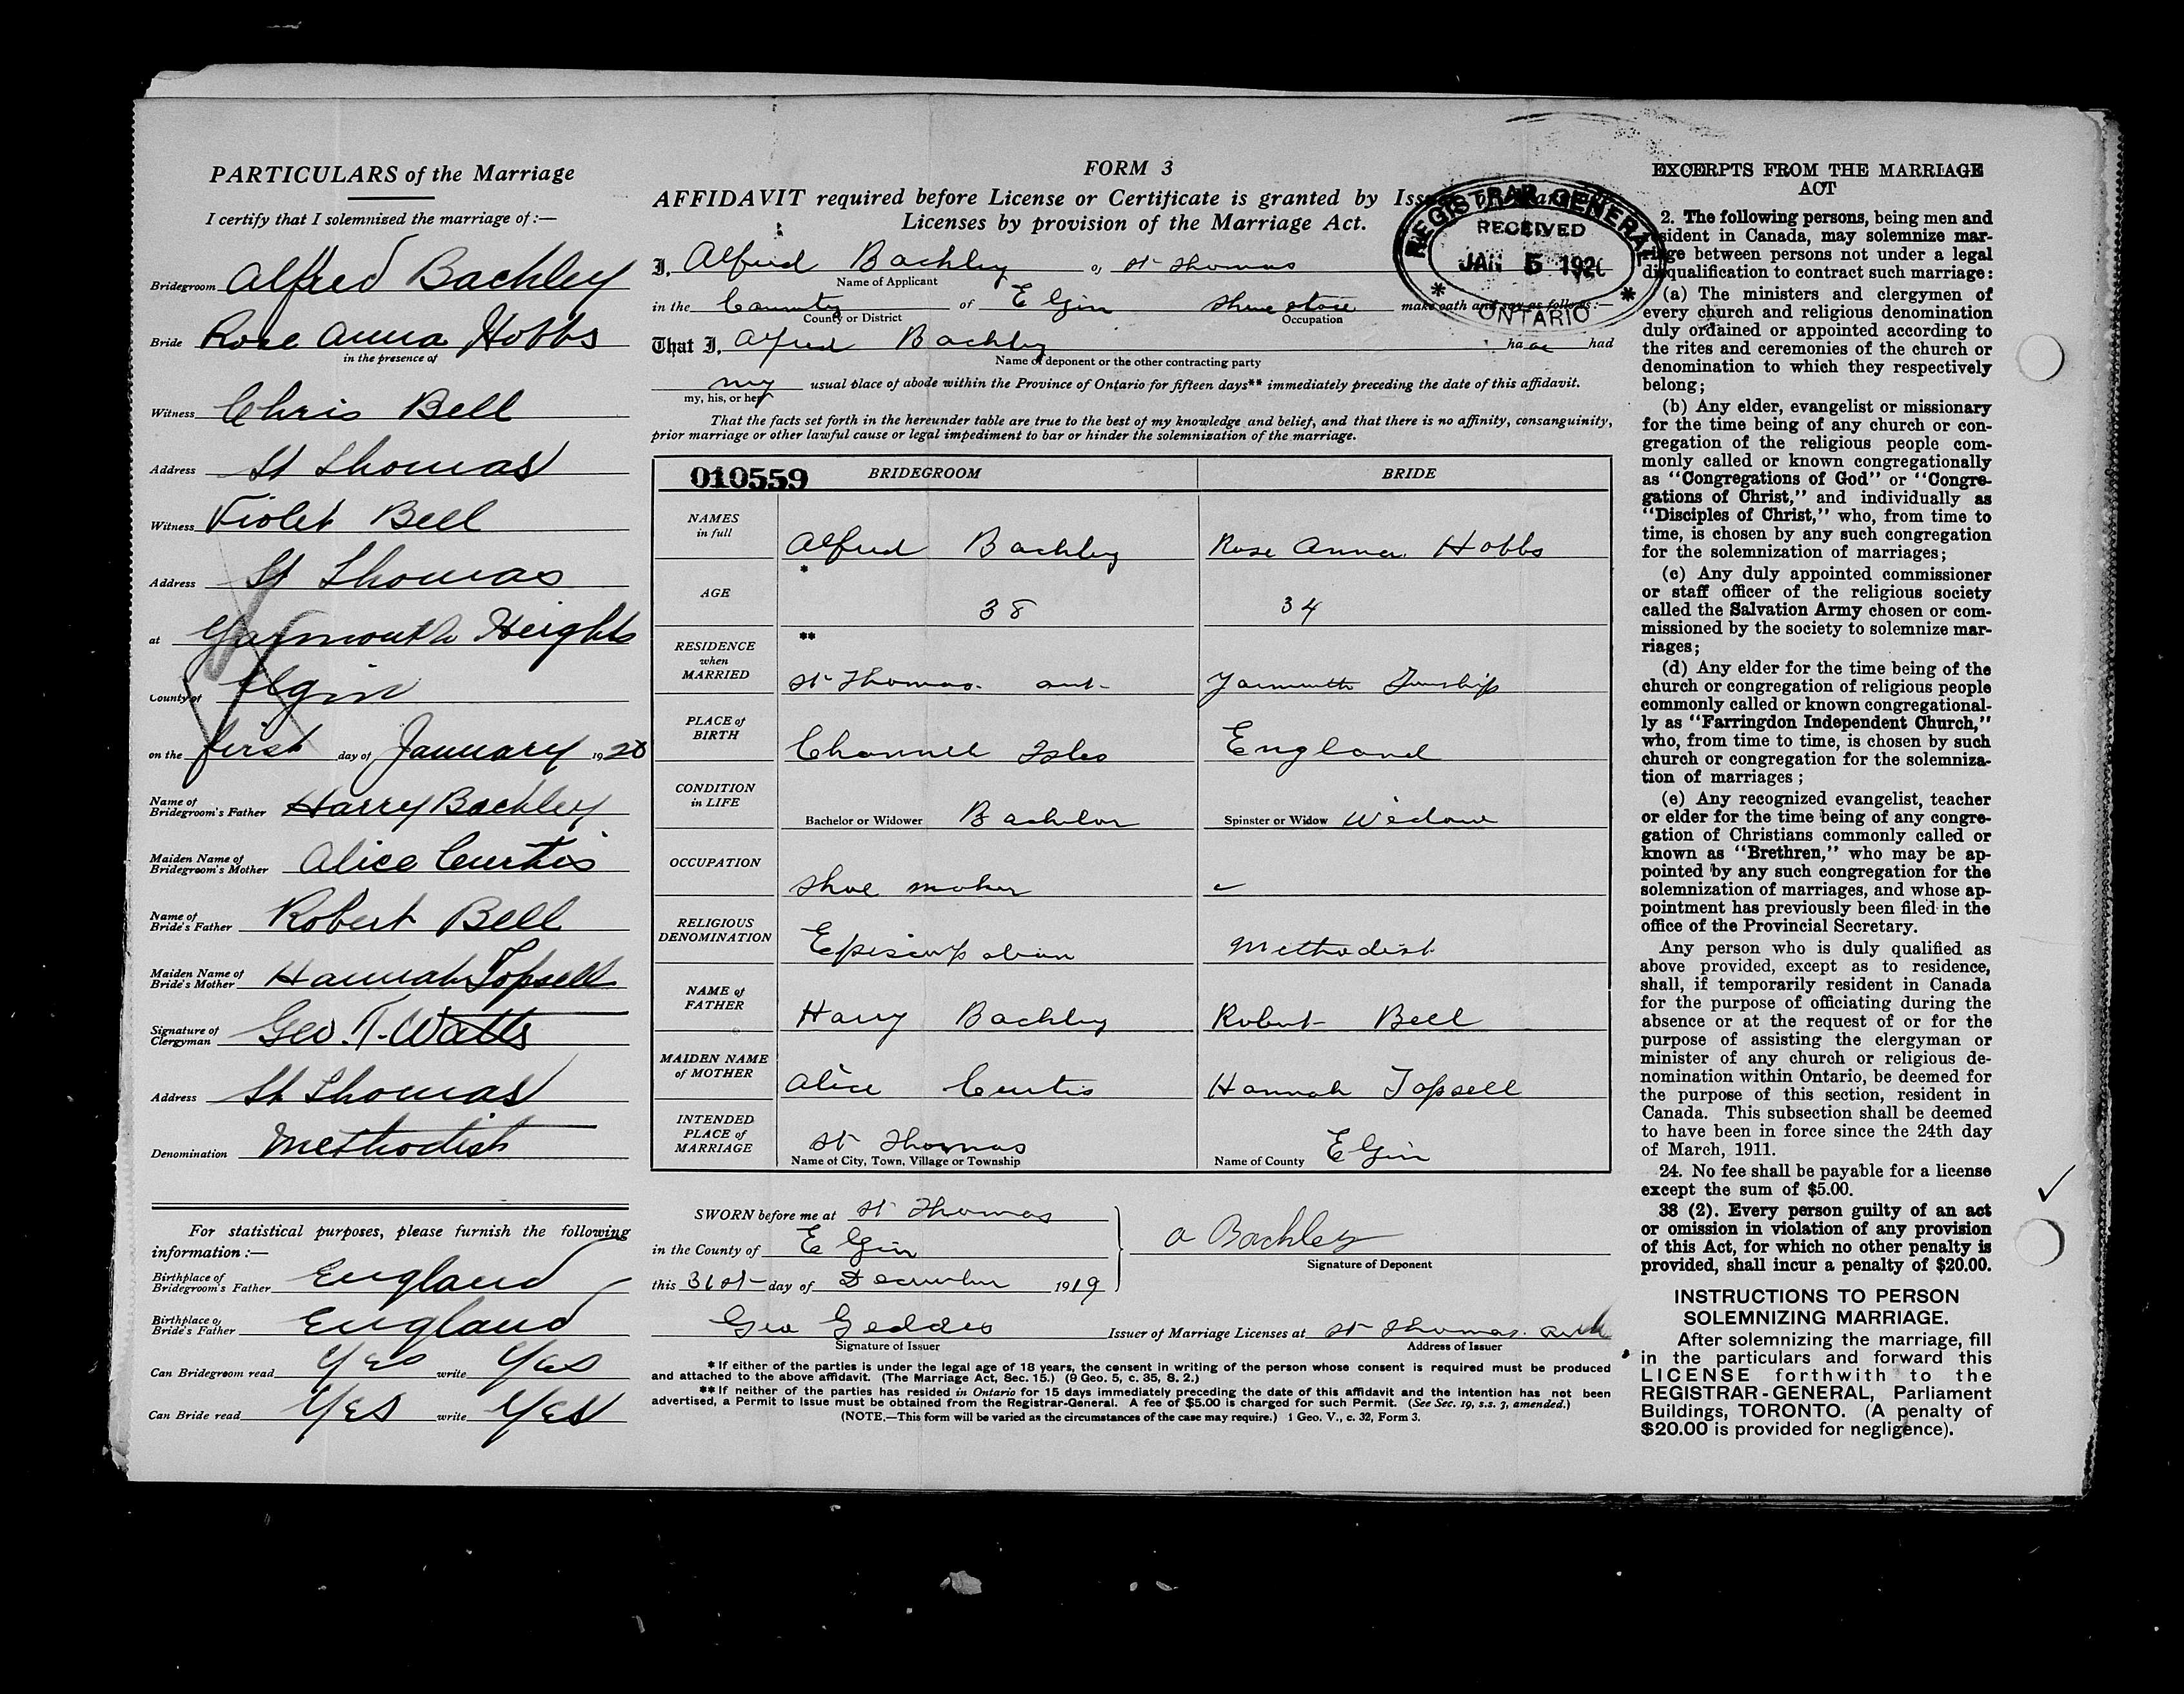 PARTICULARS of the Marriage
I certify that I solemnized the marriage of :—
Bridegroom Alfred Bachley
Bride Rose Anna Hobbs
in the presence of
Witness Chris Bell
Address St Thomas
Witness Violet Bell
Address St Thomas
at Yarmouth Heights
County of Elgin
on the first day of January 1920
Name of
Bridegroom's Father Harry Bachley
Maiden Name of
Bridegroom's Mother Alice Curtis
Name of
Bride's Father Robert Bell
Maiden Name of
Bride's Mother Hannah Topsell
Signature of
Clergyman Geo. T. Watts
Address St Thomas
Denomination Methodist
For statistical purposes, please furnish the following
information :—
Birthplace of
Bridegroom's Father England
Birthplace of
Bride's Father England
Can Bridegroom read Yes write Yes
Can Bride read Yes write Yes
FORM 3
AFFIDAVIT required before License or Certificate is granted by
Licenses by provision of the Marriage Act.
REGISTRAR GENERAL
RECEIVED
JAN 5 1920
ONTARIO
I, Alfred Bachley of St Thomas
Name of Applicant
in the County of Elgin Shoe store make oath and say as follows :—
County or District Occupation
That I, Alfred Bachley ha had
Name of deponent or the other contracting party
my usual place of abode within the Province of Ontario for fifteen days** immediately preceding the date of this affidavit.
my, his, or her
That the facts set forth in the hereunder table are true to the best of my knowledge and belief, and that there is no affinity, consanguinity,
prior marriage or other lawful cause or legal impediment to bar or hinder the solemnization of the marriage.
010559 BRIDEGROOM BRIDE
NAMES
in full
Alfred Bachley Rose Anna Hobbs
*
AGE
38 34
**
RESIDENCE
when
MARRIED
St Thomas. ont- Yarmouth Township
PLACE of
BIRTH
Channel Isles England
CONDITION
in LIFE
Bachelor or Widower Bachelor Spinster or Widow Widow
OCCUPATION
Shoe maker
RELIGIOUS
DENOMINATION
Episcopalian Methodist
NAME of
FATHER
Harry Bachley Robert Bell
MAIDEN NAME
of MOTHER
Alice Curtis Hannah Topsell
INTENDED
PLACE of
MARRIAGE
St Thomas Elgin
Name of City, Town, Village or Township Name of County
SWORN before me at St Thomas
in the County of Elgin
this 31st day of December 1919
A Bachley
Signature of Deponent
Geo Geddes Issuer of Marriage Licenses at St Thomas. Ont
Signature of Issuer Address of Issuer
* If either of the parties is under the legal age of 18 years, the consent in writing of the person whose consent is required must be produced
and attached to the above affidavit. (The Marriage Act, Sec. 15.) (9 Geo. 5, c. 35, S. 2.)
** If neither of the parties has resided in Ontario for 15 days immediately preceding the date of this affidavit and the intention has not been
advertised, a Permit to Issue must be obtained from the Registrar-General. A fee of $5.00 is charged for such Permit. (See Sec. 19, s.s. 3, amended.)
(NOTE,—This form will be varied as the circumstances of the case may require.) 1 Geo. V., c. 32, Form 3.
EXCERPTS FROM THE MARRIAGE
ACT
2. The following persons, being men and
resident in Canada, may solemnize mar-
riage between persons not under a legal
disqualification to contract such marriage:
(a) The ministers and clergymen of
every church and religious denomination
duly ordained or appointed according to
the rites and ceremonies of the church or
denomination to which they respectively
belong;
(b) Any elder, evangelist or missionary
for the time being of any church or con-
gregation of the religious people com-
monly called or known congregationally
as "Congregations of God" or "Congre-
gations of Christ," and individually as
"Disciples of Christ," who, from time to
time, is chosen by any such congregation
for the solemnization of marriages;
(c) Any duly appointed commissioner
or staff officer of the religious society
called the Salvation Army chosen or com-
missioned by the society to solemnize mar-
riages;
(d) Any elder for the time being of the
church or congregation of religious people
commonly called or known congregational-
ly as "Farringdon Independent Church,"
who, from time to time, is chosen by such
church or congregation for the solemniza-
tion of marriages ;
(e) Any recognized evangelist, teacher
or elder for the time being of any congre-
gation of Christians commonly called or
known as "Brethren," who may be ap-
pointed by any such congregation for the
solemnization of marriages, and whose ap-
pointment has previously been filed in the
office of the Provincial Secretary.
Any person who is duly qualified as
above provided, except as to residence,
shall, if temporarily resident in Canada
for the purpose of officiating during the
absence or at the request of or for the
purpose of assisting the clergyman or
minister of any church or religious de-
nomination within Ontario, be deemed for
the purpose of this section, resident in
Canada. This subsection shall be deemed
to have been in force since the 24th day
of March, 1911.
24. No fee shall be payable for a license
except the sum of $5.00.
38 (2). Every person guilty of an act
or omission in violation of any provision
of this Act, for which no other penalty is
provided, shall incur a penalty of $20.00.
INSTRUCTIONS TO PERSON
SOLEMNIZING MARRIAGE.
After solemnizing the marriage, fill
in the particulars and forward this
LICENSE forthwith to the
REGISTRAR-GENERAL, Parliament
Buildings, TORONTO. (A penalty of
$20.00 is provided for negligence).